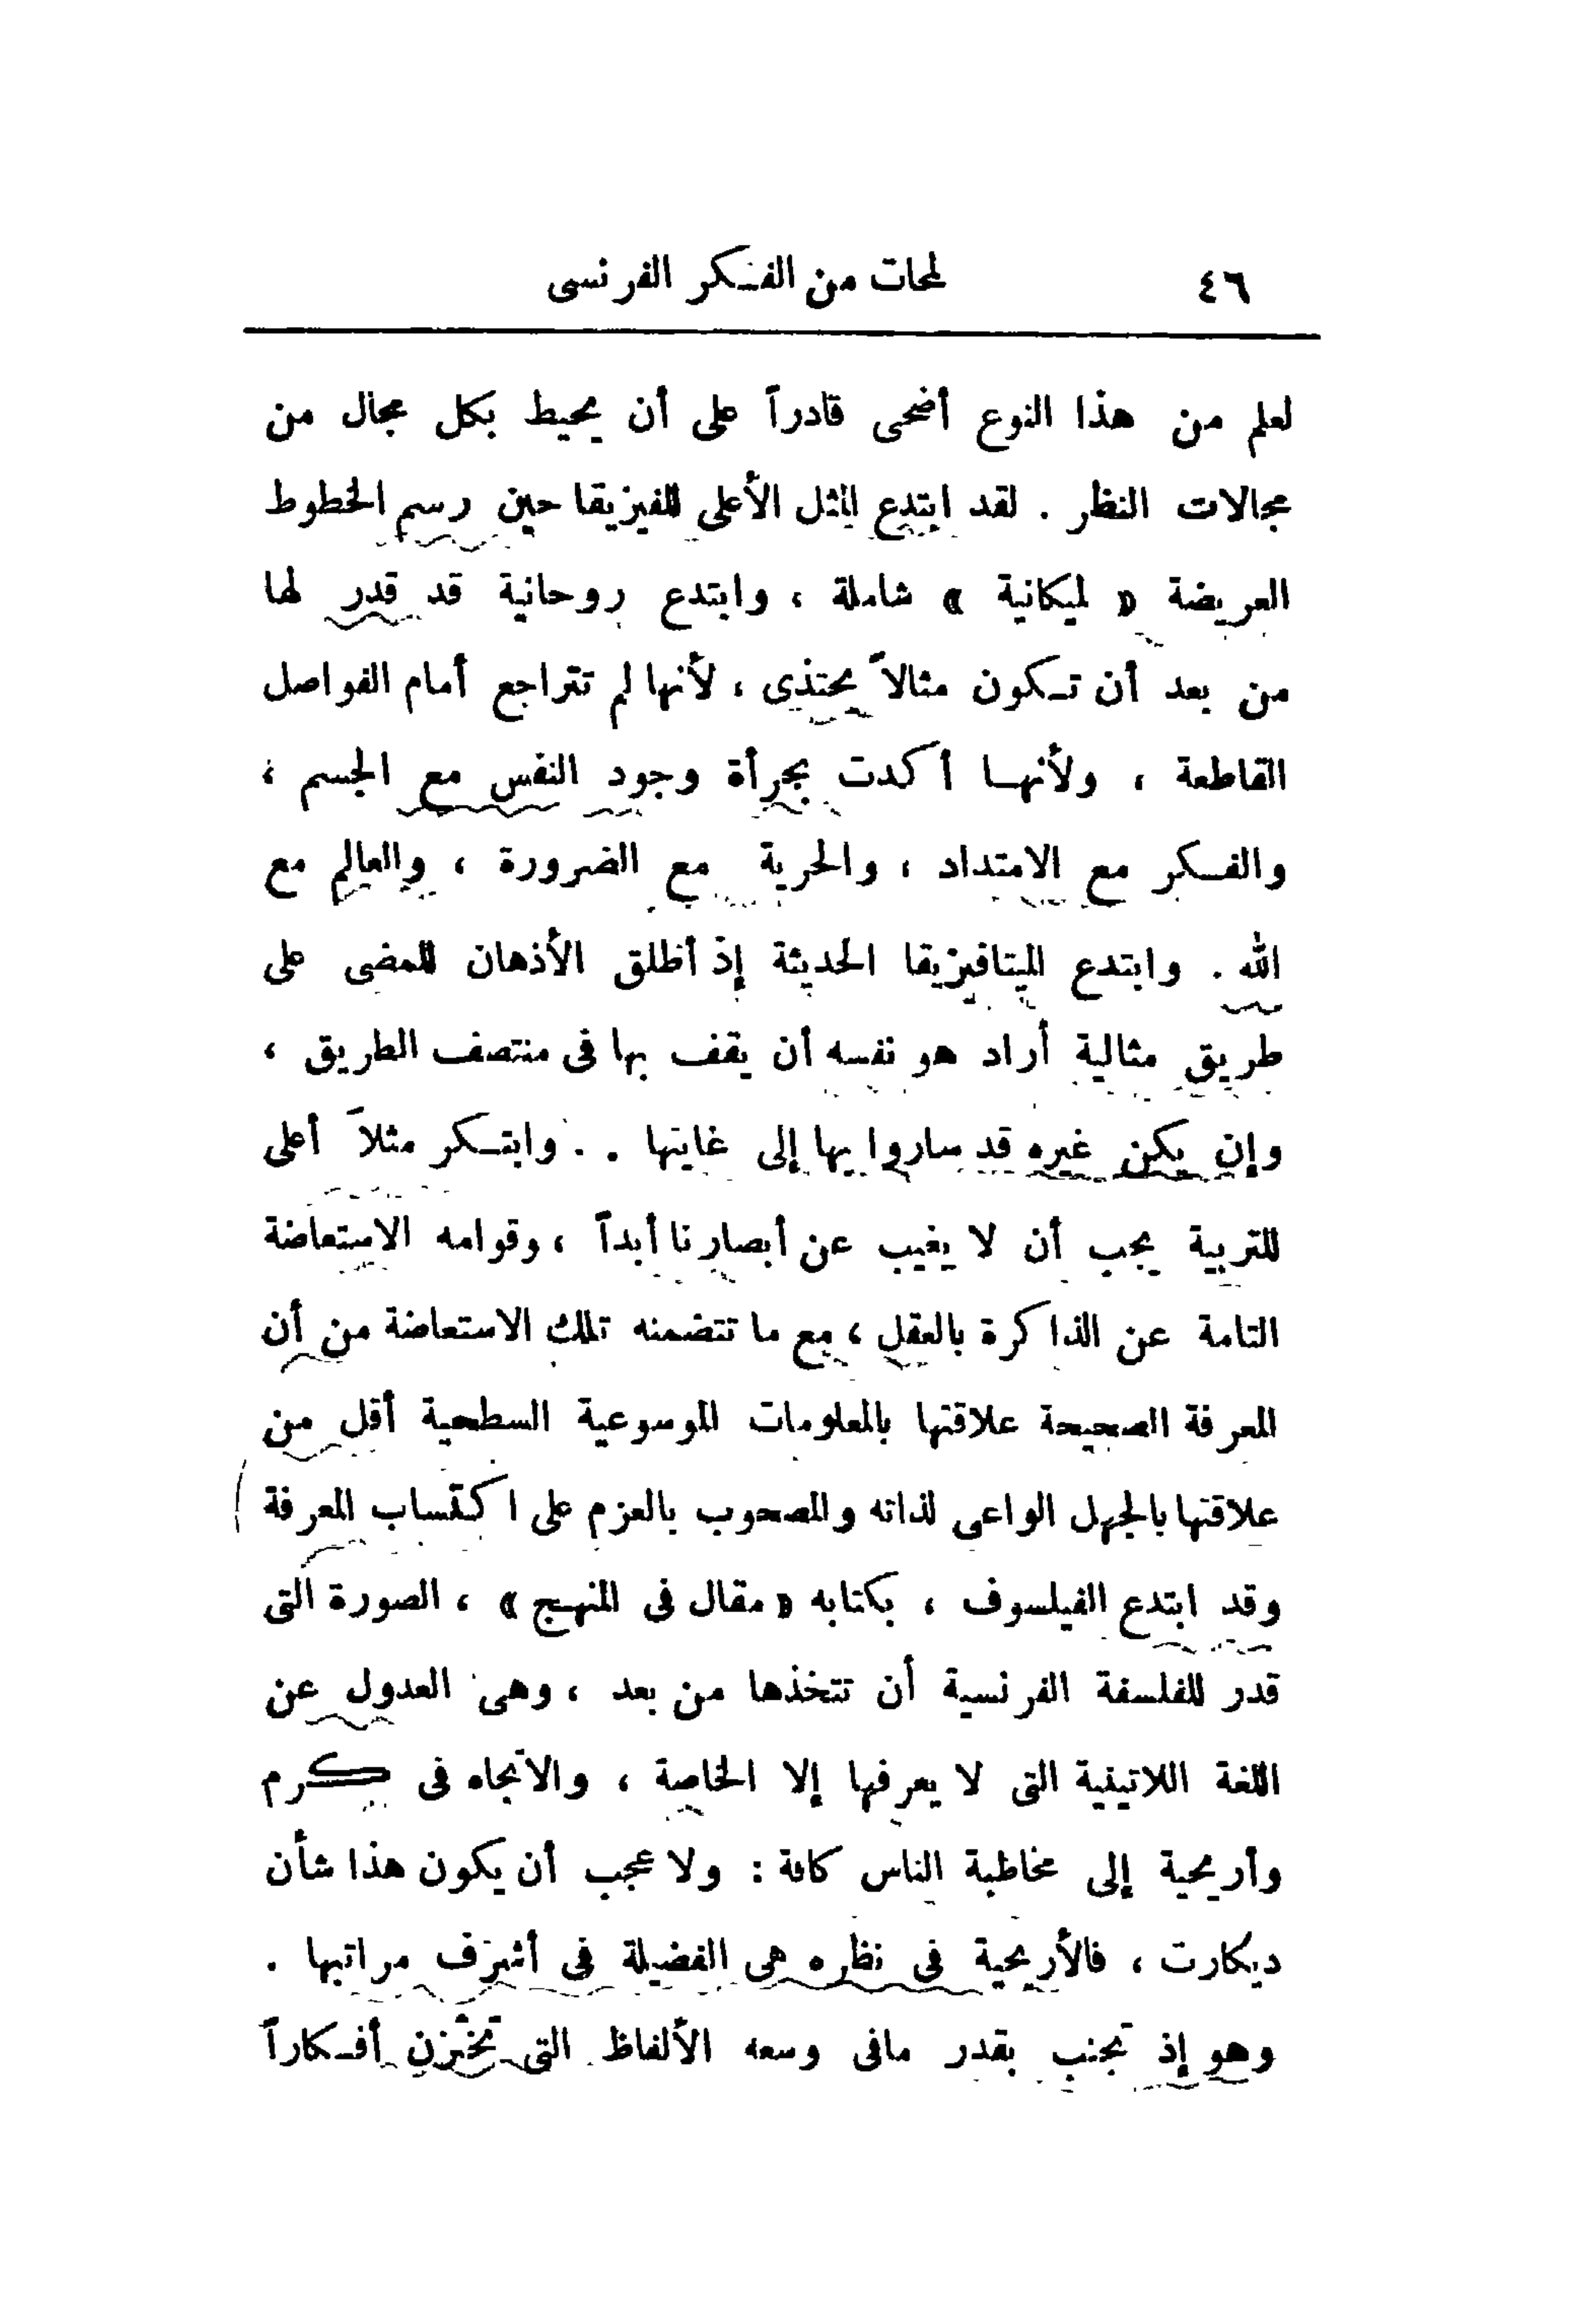 ٤٦ لمحات من الفكر الفرنسى
لعلم من هذا النوع أضحى قادراً على أن يحيط بكل مجال من
مجالات النظر . لقد ابتدع المثل الأعلى للفيزيقا حين رسم الخطوط
العريضة « لميكانية » شاملة ، وابتدع روحانية قد قدر لها
من بعد أن تكون مثالاً يحتذى ، لأنها لم تتراجع أمام الفواصل
القاطعة ، ولأنها أكدت بجرأة وجود النفس مع الجسم ،
والفكر مع الامتداد ، والحرية مع الضرورة ، والعالم مع
الله . وابتدع الميتافيزيقا الحديثة إذ أطلق الأذهان للمضى على
طريق مثالية أراد هو نفسه أن يقف بها فى منتصف الطريق ،
وإن يكن غيره قد ساروا بها إلى غايتها . . وابتكر مثلاً أعلى
للتربية يجب أن لا يغيب عن أبصارنا أبداً ، وقوامه الاستعاضة
التامة عن الذاكرة بالعقل ، مع ما تتضمنه تلك الاستعاضة من أن
المعرفة الصحيحة علاقتها بالمعلومات الموسوعية السطحية أقل من
علاقتها بالجهل الواعى لذاته والمصحوب بالعزم على اكتساب المعرفة
وقد ابتدع الفيلسوف ، بكتابه « مقال فى المنهج » ، الصورة التى
قدر للفلسفة الفرنسية أن تتخذها من بعد ، وهى العدول عن
اللغة اللاتينية التى لا يعرفها إلا الخاصة ، والاتجاه فى كرم
وأريحية إلى مخاطبة الناس كافة : ولا عجب أن يكون هذا شأن
ديكارت ، فالأريحية فى نظره هى الفضيلة فى أشرف مراتبها .
وهو إذ تجنب بقدر مافى وسعه الألفاظ التى تختزن أفكاراً